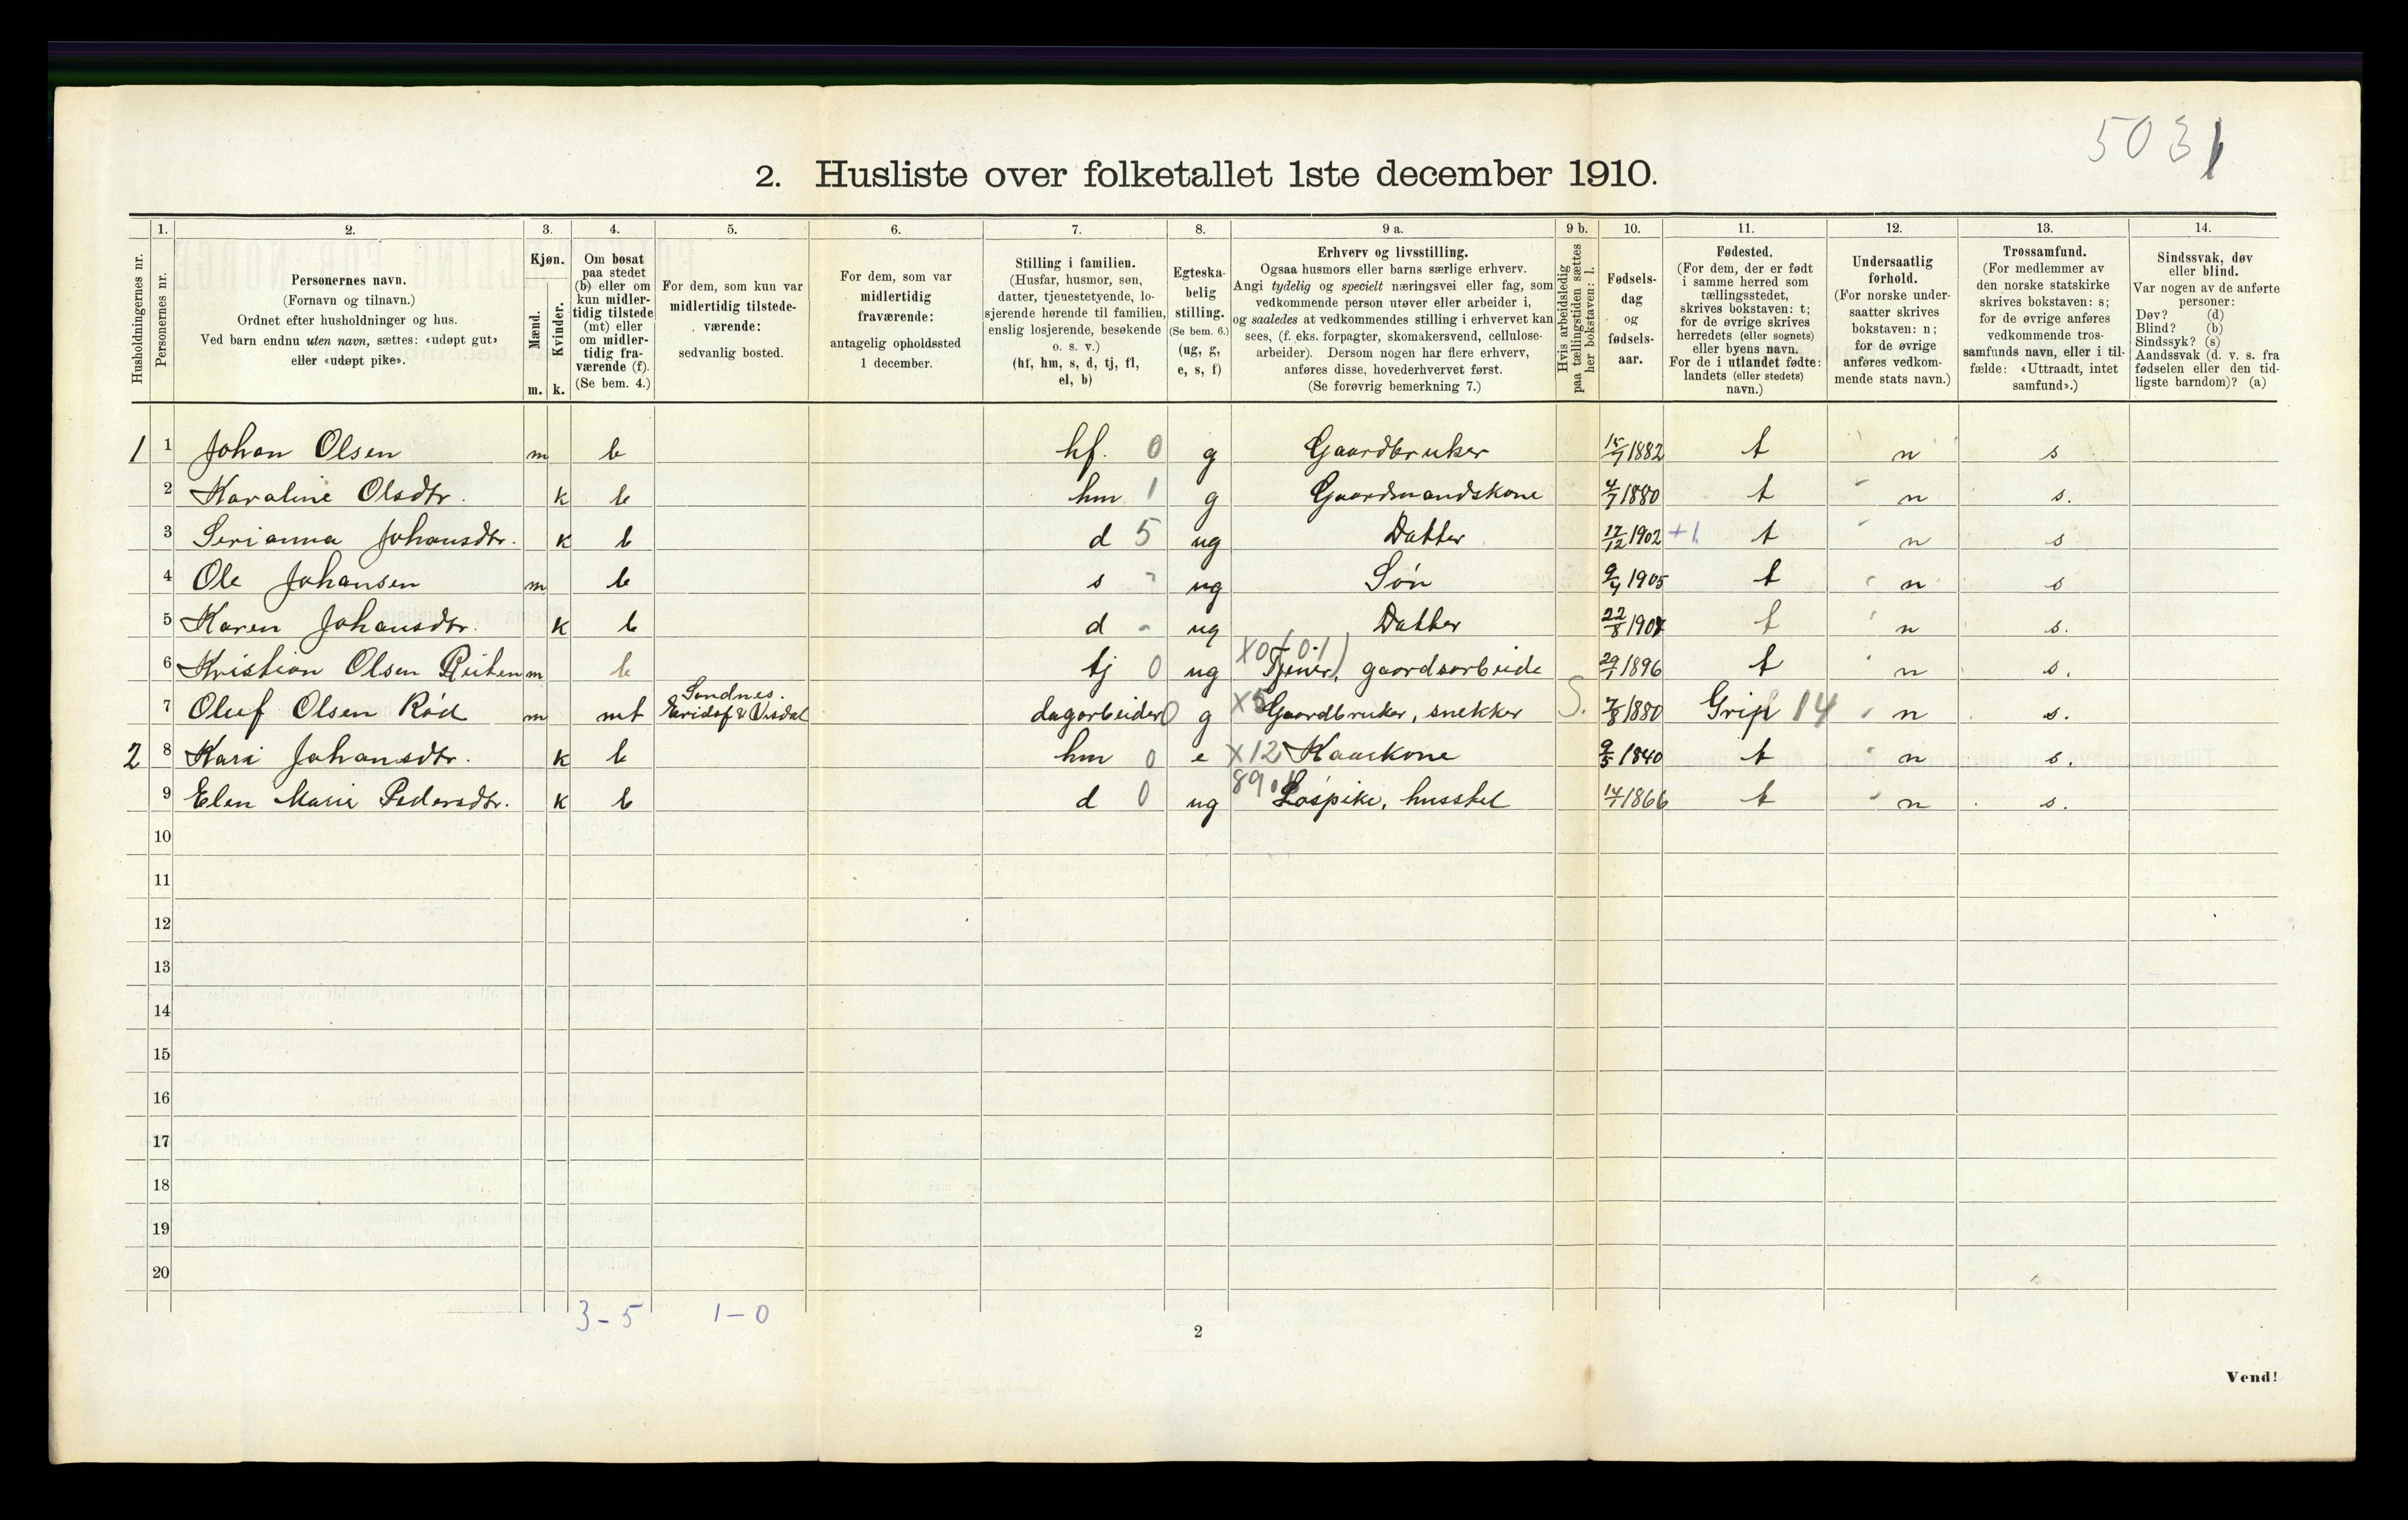 5031
2. Husliste over folketallet 1ste december 1910.
1. 2. 3. 4. 5. 6. 7. 8. 9 a. 9 b. 10. 11. 12. 13. 14.
Husholdningernes nr.
Personernes nr.
Personernes navn.
(Fornavn og tilnavn.)
Ordnet efter husholdninger og hus.
Ved barn endnu uten navn, sættes: «udøpt gut»
eller «udøpt pike».
Kjøn.
Mænd.
Kvinder.
m. k.
Om bosat
paa stedet
(b) eller om
kun midler-
tidig tilstede
(mt) eller
om midler-
tidig fra-
værende (f).
(Se bem. 4.)
For dem, som kun var
midlertidig tilstede-
værende:
sedvanlig bosted.
For dem, som var
midlertidig
fraværende:
antagelig opholdssted
1 december.
Stilling i familien.
(Husfar, husmor, søn,
datter, tjenestetyende, lo-
sjerende hørende til familien,
enslig losjerende, besøkende
o. s. v.)
(hf, hm, s, d, tj, fl,
el, b)
Egteska-
belig
stilling.
(Se bem. 6.)
(ug, g,
e, s, f)
Erhverv og livsstilling.
Ogsaa husmors eller barns særlige erhverv.
Angi tydelig og specielt næringsvei eller fag, som
vedkommende person utøver eller arbeider i,
og saaledes at vedkommendes stilling i erhvervet kan
sees, (f. eks. forpagter, skomakersvend, cellulose-
arbeider). Dersom nogen har flere erhverv,
anføres disse, hovederhvervet først.
(Se forøvrig bemerkning 7.)
Hvis arbeidsledig
paa tællingstiden sættes
her bokstaven: l.
Fødsels-
dag
og
fødsels-
aar.
Fødested.
(For dem, der er født
i samme herred som
tællingsstedet,
skrives bokstaven: t;
for de øvrige skrives
herredets (eller sognets)
eller byens navn.
For de i utlandet fødte:
landets (eller stedets)
navn.)
Undersaatlig
forhold.
(For norske under-
saatter skrives
bokstaven: n;
for de øvrige
anføres vedkom-
mende stats navn.)
Trossamfund.
(For medlemmer av
den norske statskirke
skrives bokstaven: s;
for de øvrige anføres
vedkommende tros-
samfunds navn, eller i til-
fælde: «Uttraadt, intet
samfund».)
Sindssvak, døv
eller blind.
Var nogen av de anførte
personer:
Døv? (d)
Blind? (b)
Sindssyk? (s)
Aandssvak (d. v. s. fra
fødselen eller den tid-
ligste barndom)? (a)
1 1 Johan Olsen m b hf. 0 g Gaardbruker 15/7 1882 t n s
2 Karaline Olsdtr. k b hm 1 g Gaardmandskone 4/7 1880 t n s.
3 Serianna Johansdtr. k b d 5 ug Datter 17/12 1902 +1 t n s
4 Ole Johansen m b s - ug Søn 9/4 1905 t n s
5 Karen Johansdtr. k b d - ug Datter 22/8 1907 t n s.
X0 (01)
6 Kristian Olsen m b tj 0 ug Tjener, gaardsarbeide 29/1 1896 t n s.
Sandnes.
7 Oluf Olsen Rød m mt dagarbeider 0 g X5 Gaardbruker, snekker S. 7/8 1880 Grip 14 n s.
2 8 Kari Johansdtr. k b hm 0 e X12 Kaarkone 9/5 1840 t n s.
9 Elen Marie Pedersdtr. k b d 0 ug Løspike, husstel 14/7 1866 t n s.
10
11
12
13
14
15
16
17
18
19
20
3-5 1-0
2
Vend!